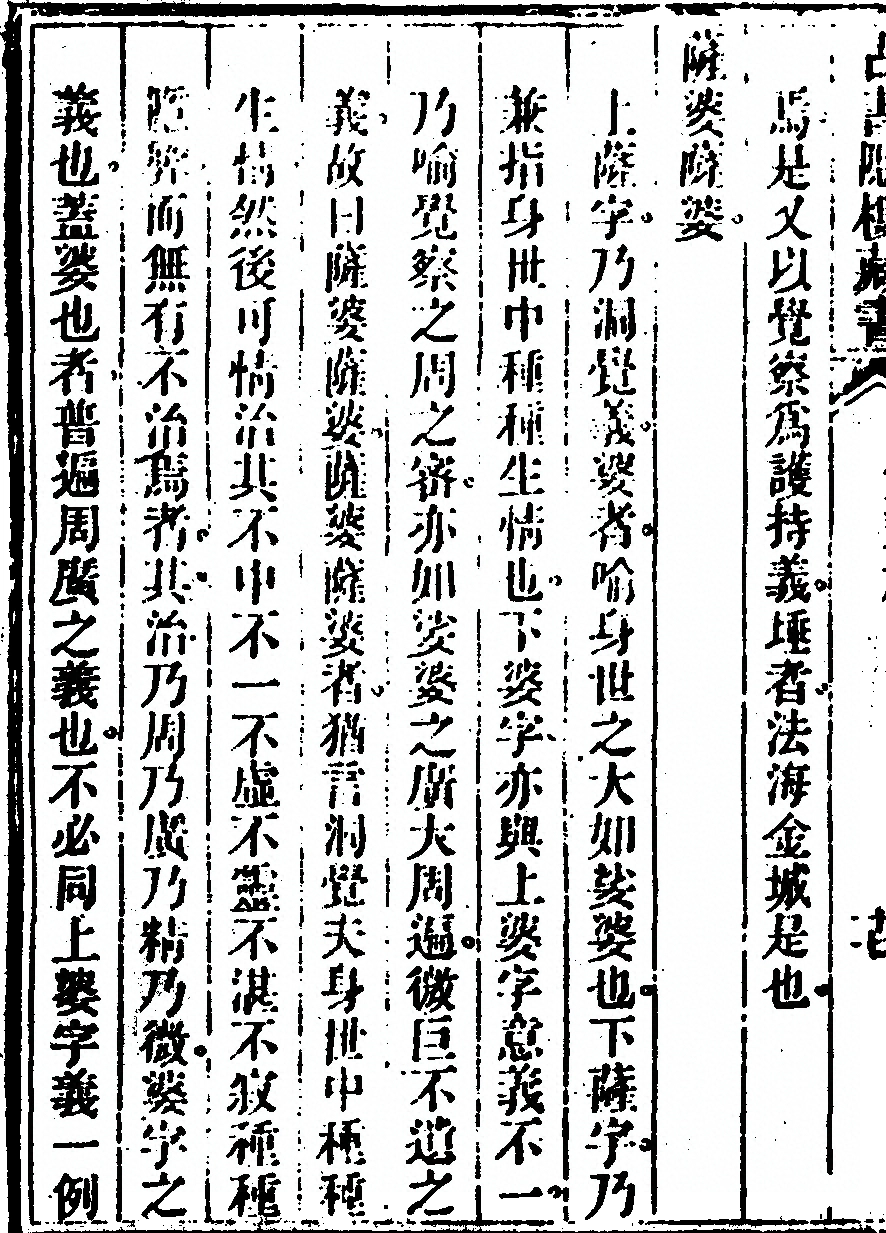 馬是又以覺察爲護持義埵者法海金城是也
薩婆薩婆
上薩字乃洞覺義婆者喻身世之大如娑婆也下薩字乃
兼指身世中種種生情也下婆字亦與上婆字意義不一
乃喻覺察之周之審亦如娑婆之廣大周遍微巨不遺之
義故曰薩婆薩婆薩婆薩婆者猶言洞覺夫身世中種種
生情然後可情治其不中不一不虛不靈不湛不寂種種
弊而無有不治焉者其治乃周乃廣乃精乃微婆字之
義也蓋婆也者普遍周廣之義也不必同上婆字義一例